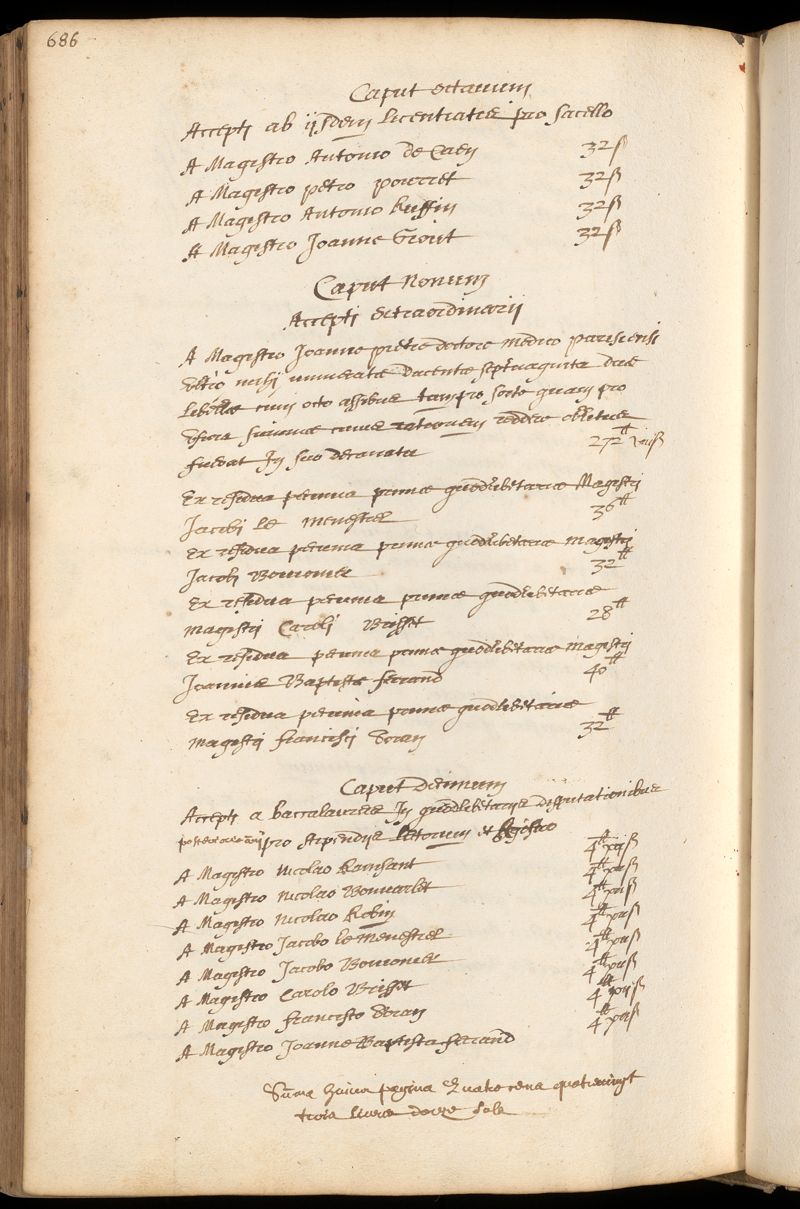 686
Caput octauum
Accepti ab iisdem licentiatis pro sacello
A Magistro Antonio de Caen 32 ß
A Magistro petro pourret 32 ß
A Magistro Antonio Ruffin 32 ß
A Magistro Joanne Griout 32 ß
Caput Nonum
Accepti extraordinarii
A Magistro Joanne pietre doctore medico parisiensi
vltio mihi numeratae ducentae septuaginta duae
libellae cum octo assibus tam pro sorte quam pro
vsura summae cuius rationem reddere oblitus
fuerat In suo decanatu 272 ₶ viii ß
Ex residua pecunia primae quodlibetariae Magistri
Jacobi Le Menestrel 36 ₶
Ex residua pecunia primae quodlibetariae magistri
Jacobi 32 ₶
Ex residua pecunia primae quodlibetariae
magistri Caroli Brisset 28 ₶
Ex residua pecunia primae quodlibetariae magistri
Joannis Baptistae ferrand 40 ₶
Ex residua pecunia primae quodlibetariae
magistri francisci 32 ₶
Caput decimum
Accepti a baccalaureis In quodlibetariis disputationibus
pro stipendiis lectorum et
A Magistro Nicolao 4 ₶ xii ß
A Magistro Nicolao Bonvarlet 4 ₶ xii ß
A Magistro Nicolao Robin 4 ₶ xii ß
A Magistro Jacobo le Menestrel 4 ₶ xii ß
A Magistro Jacobo 4 ₶ xii ß
A Magistro Carolo Brisset 4 ₶ xii ß
A Magistro francisco 4 ₶ xii ß
A Magistro Joanne Baptista ferrand 4 ₶ xii ß
Suma huius pagina Quatre cens quatre vingt
trois liures douze sols